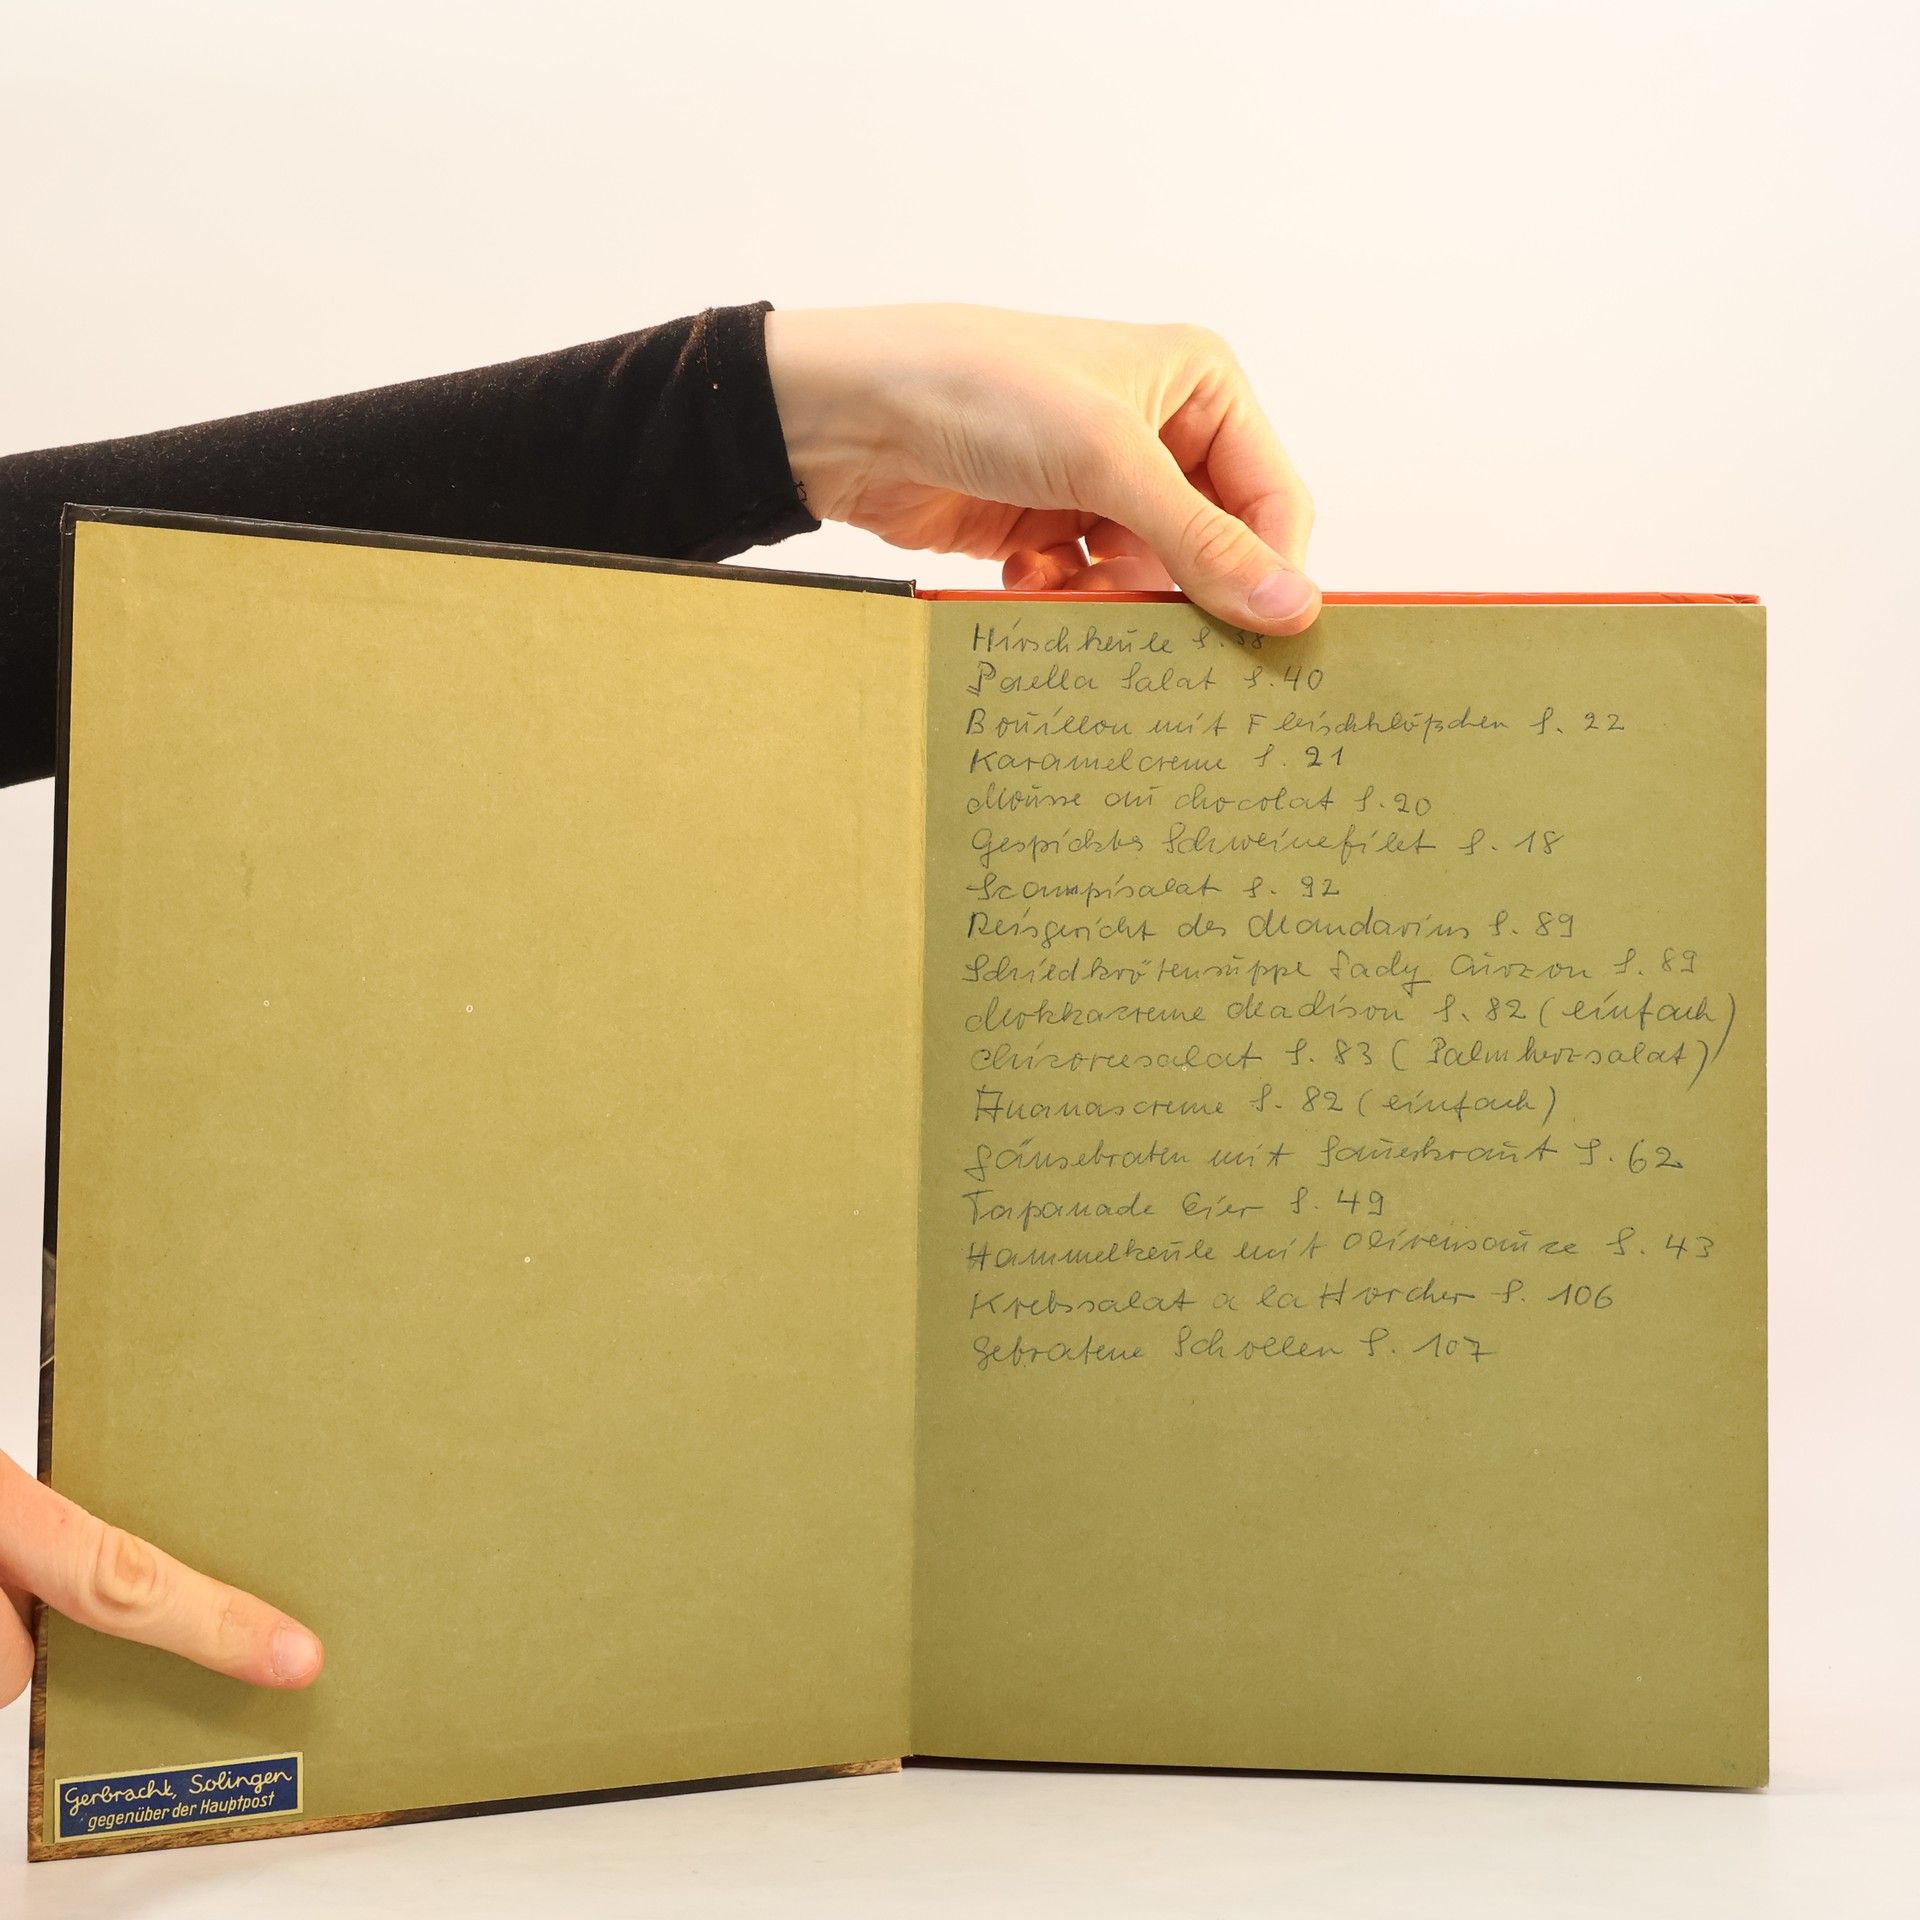 Hirschkeule S. 38
Paella Salat S. 40
Bouillon mit Fleischklößchen S. 22
Karamelcreme S. 21
Mousse au chocolat S. 20
Gespicktes Schweinefilet S. 18
Scampisalat S. 92
Reisgericht des Mandarins S. 89
Schildkrötensuppe Lady Curzon S. 89
Mokkacreme Madison S. 82 (einfach)
Chicoreesalat S. 83 (Palmherzsalat)
Ananascreme S. 82 (einfach)
Gänsebraten mit Sauerkraut S. 62
Tapanade Eier S. 49
Hammelkeule mit Olivensauce S. 43
Krebssalat a la Horcher S. 106
Gebratene Schollen S. 107
Gerbracht, Solingen
gegenüber der Hauptpost